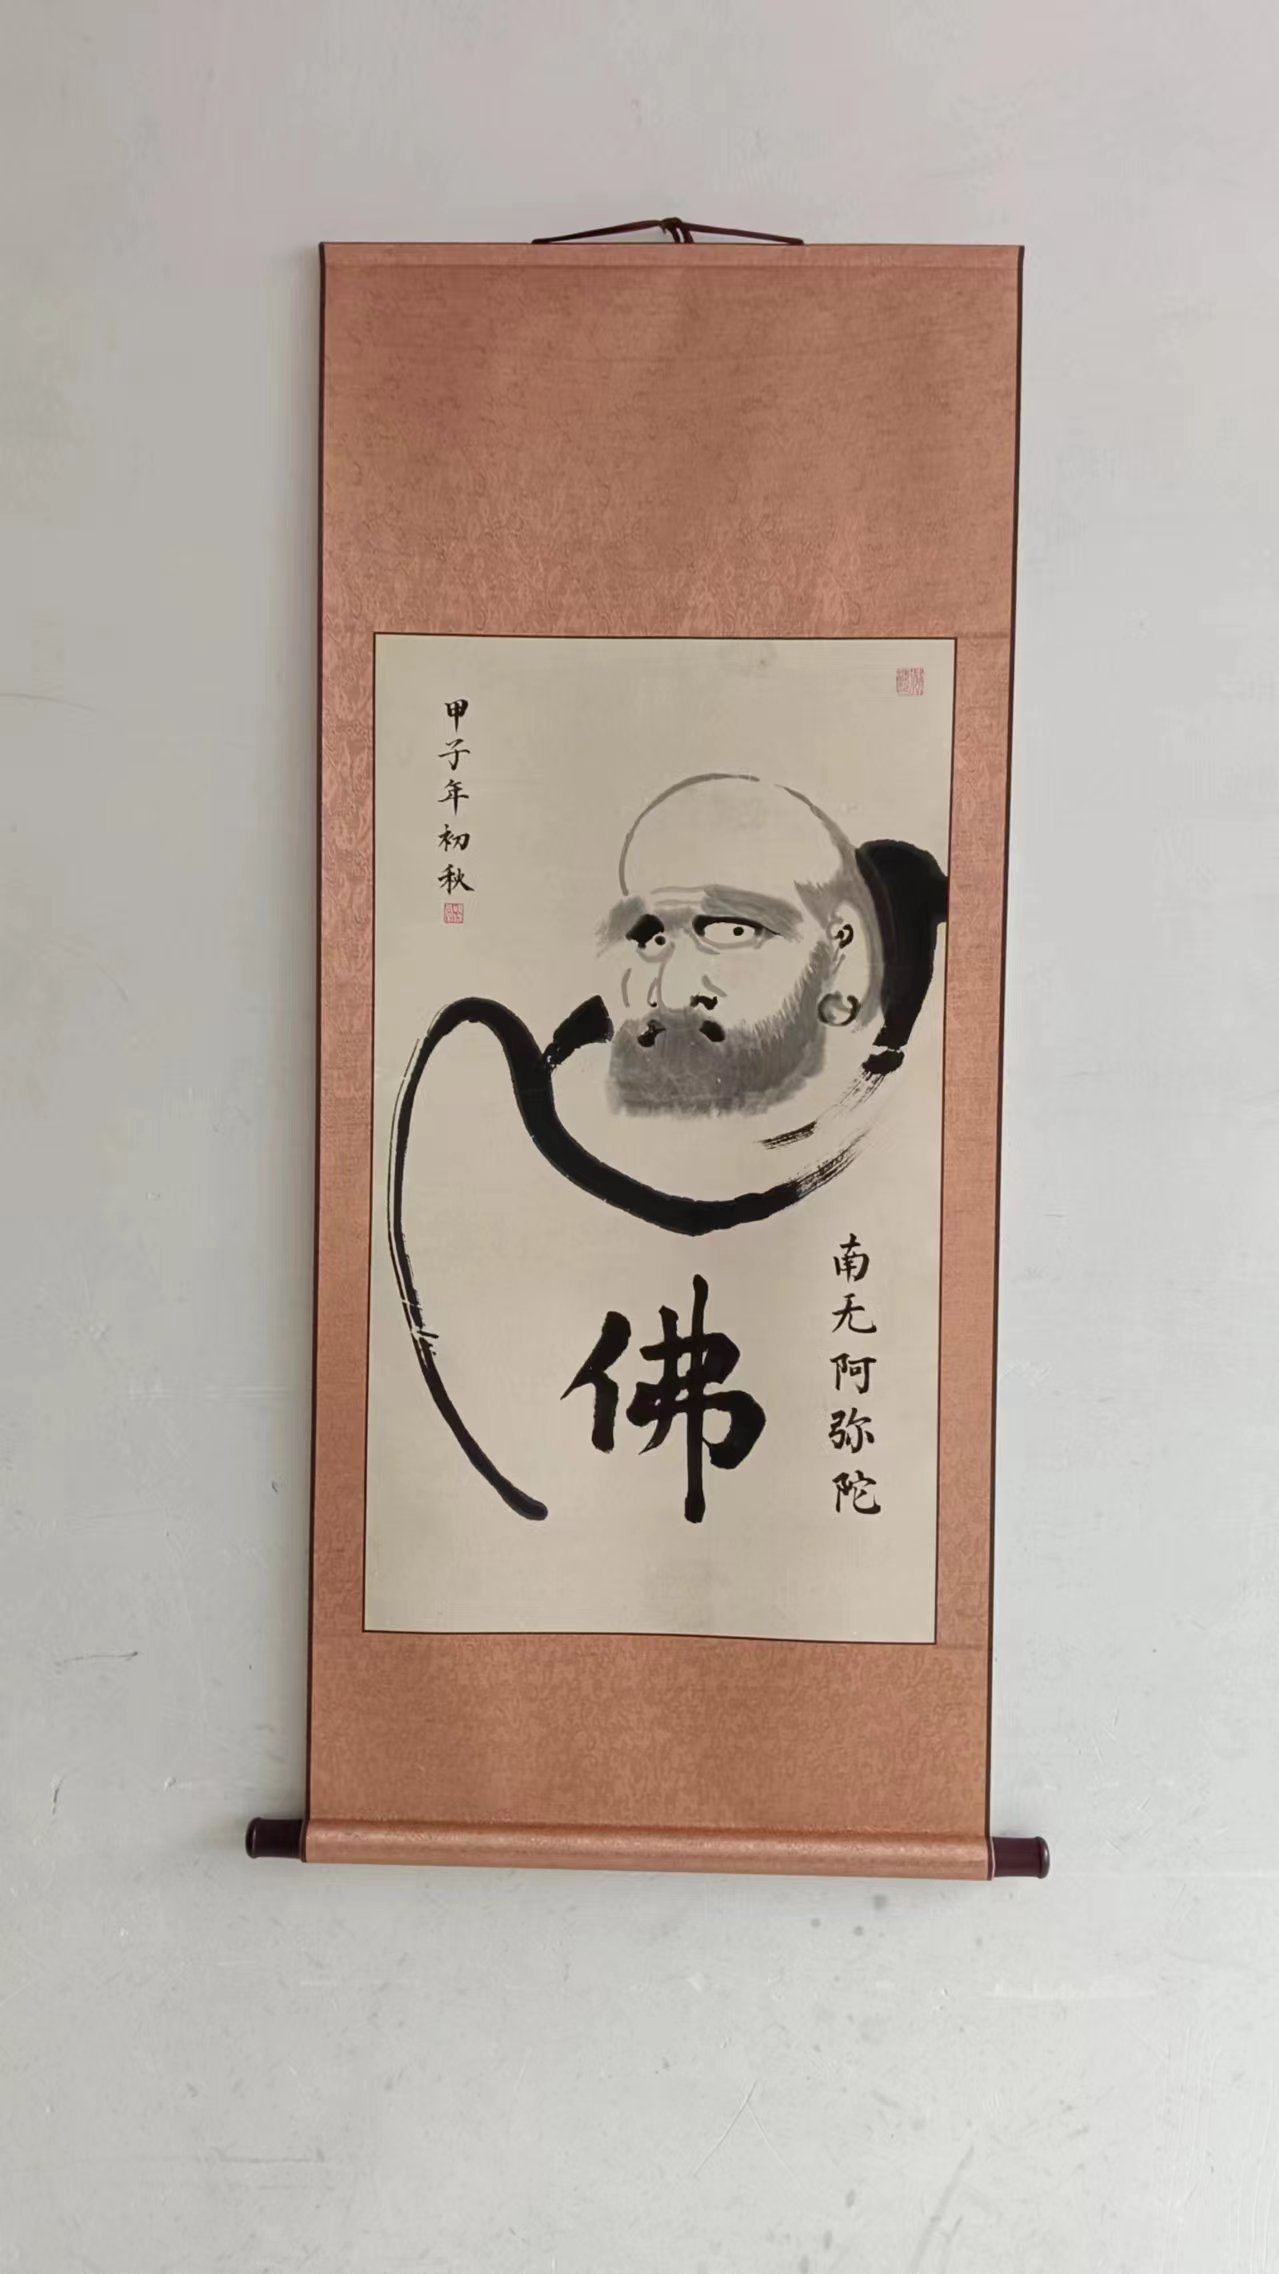 南无阿弥陀
佛
甲子年初秋